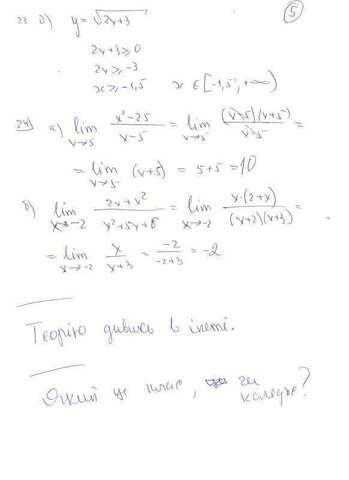 5
23 б) y = √2x+3
2x+3 ≥ 0
2x ≥ -3
x ≥ -1,5 x ∈ [-1,5; +∞)
24) а) lim x→5 (x²-25)/(x-5) = lim x→5 (x-5)(x+5)/(x-5) =
= lim x→5 (x+5) = 5+5 = 10
б) lim x→-2 (2x+x²)/(x²+5x+6) = lim x→-2 x·(2+x)/((x+2)(x+3)) =
= lim x→-2 x/(x+3) = -2/(-2+3) = -2
Теорію дивись в інеті.
Який це клас, чи
коледж?